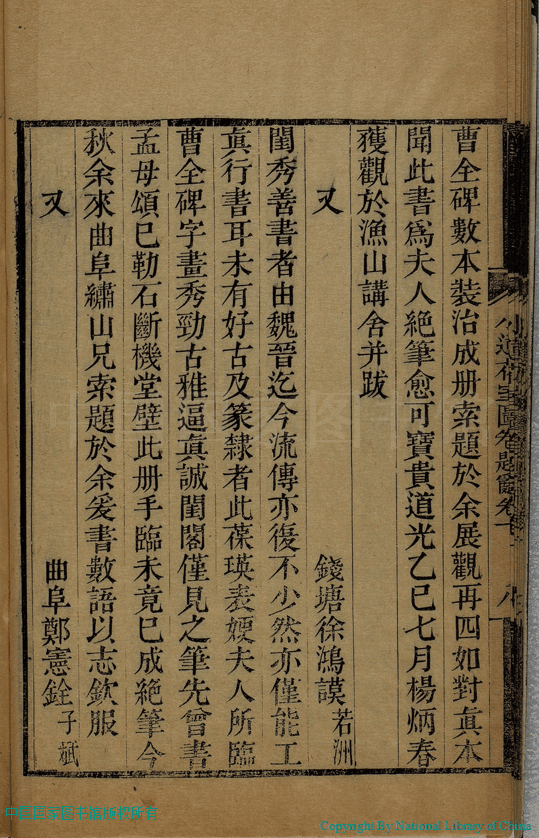 曹全碑數本裝治成册索題於余展觀再四如對眞本
聞此書爲夫人絕筆愈可寶貴道光乙巳七月楊炳春
獲觀於漁山講舍并跋
又
錢塘徐鴻謨若洲
閨秀善書者由魏晉迄今流傳亦復不少然亦僅能工
眞行書耳未有好古及篆隸者此葆瑛表嫂夫人所臨
曹全碑字畫秀勁古雅逼眞誠閨閣僅見之筆先曾書
孟母頌已勒石斷機堂壁此册手臨未竟已成絕筆今
秋余來曲阜繡山兄索題於余爰書數語以志欽服
又
曲阜鄭憲銓子斌
小蓮花室圖卷題辭卷
八
中国国家图书馆版权所有
Copyright By National Library of China